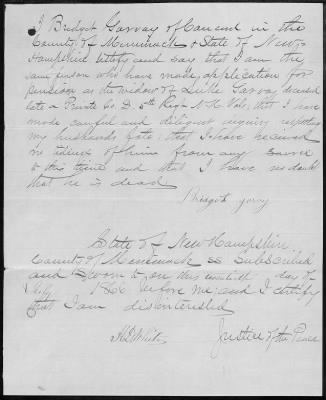 I Bridget Garvay of Concord in the
County of Merrimack & State of New
Hampshire testify and say that I am the
same person who have made application for
pension as the widow of Luke Garvay deceased
late a Private Co. D. Regt N H Vols, that I have
made careful and diligent inquiry respecting
my husbands fate: that I have received
no tidings of him from any source
to this time and that I have no doubt
that he is dead
Bridget
State of New Hampshire
County of Merrimack ss Subscribed
and Sworn to on this day of
July 1866 before me: and I certify
that I am disinterested
White
Justice of the Peace